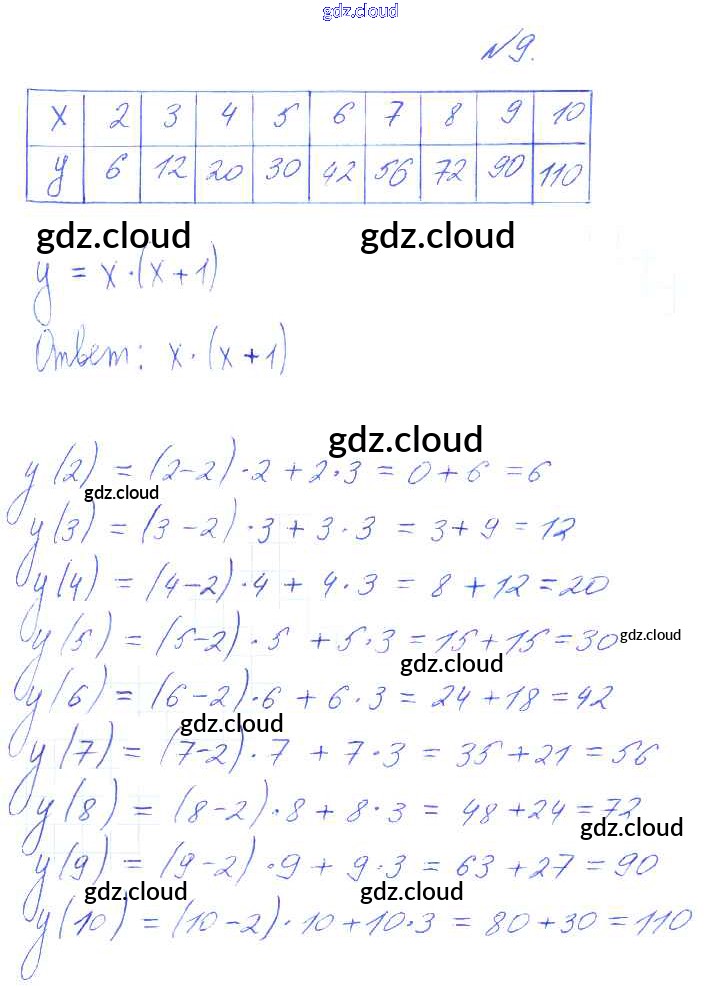 gdz.cloud
№9.
x 2 3 4 5 6 7 8 9 10
y 6 12 20 30 42 56 72 90 110
gdz.cloud gdz.cloud
y = x·(x+1)
Ответ: x·(x+1)
gdz.cloud
y(2) = (2-2)·2 + 2·3 = 0+6 = 6
gdz.cloud
y(3) = (3-2)·3 + 3·3 = 3+9 = 12
y(4) = (4-2)·4 + 4·3 = 8+12 = 20
y(5) = (5-2)·5 + 5·3 = 15+15 = 30 gdz.cloud
gdz.cloud
y(6) = (6-2)·6 + 6·3 = 24+18 = 42
gdz.cloud
y(7) = (7-2)·7 + 7·3 = 35+21 = 56
y(8) = (8-2)·8 + 8·3 = 48+24 = 72
gdz.cloud
y(9) = (9-2)·9 + 9·3 = 63+27 = 90
gdz.cloud gdz.cloud
y(10) = (10-2)·10 + 10·3 = 80+30 = 110